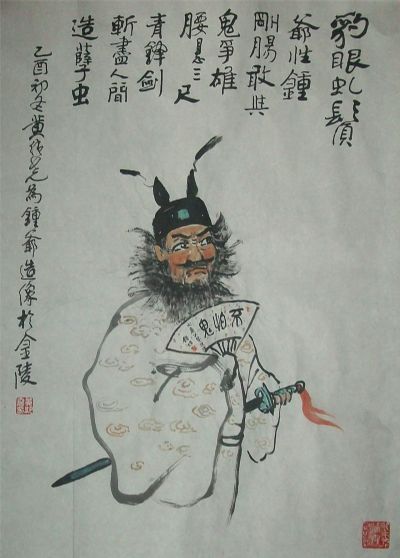 豹眼虬鬚
爺性鍾
剛腸敢共
鬼爭雄
腰悬三尺
青鋒劍
斬盡人間
造孽虫
乙酉初冬黄為鍾爺造像於金陵
不怕鬼